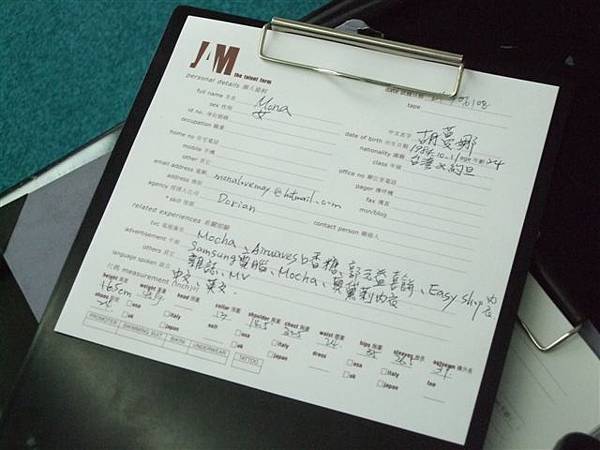 JAM
the talent farm
personal details 個人資料
date 試鏡日期
tape
full name 姓名 Mona
sex 性別 女
中文名字 胡蔓娜
id no. 身份證號碼
date of birth 出生日期 1984.10.1 age 年齡 24
occupation 職業
nationality 國籍 台灣
class 年級
home no 住宅電話
office no 辦公室電話
mobile 手機
pager 傳呼機
other 其它
fax 傳真
email address 電郵 monalovemay@hotmail.com
msn/blog
address 地址
agency 經理人公司 Dorian
contact person 聯絡人
related experiences 有關經驗
tvc 電視廣告 Mocha、Airwaves口香糖、郭元益喜餅、Easy shop內衣
advertisement 平面 Samsung電腦、Mocha、奧黛莉內衣
others 其它 雜誌、MV
language spoken 語言 中文、英文
measurement (inch/in)
height 高度 weight 重量 head 頭圍 collar 頸圍 shoulder 肩膊 chest 胸圍 waist 腰圍 hips 臀圍 sleeves 袖長 outseam 褲外長
165cm
shoes 鞋 suit dress
usa italy
uk japan
PROMOTER SWIMMING SUIT BIKINI UNDERWEAR TATTOO